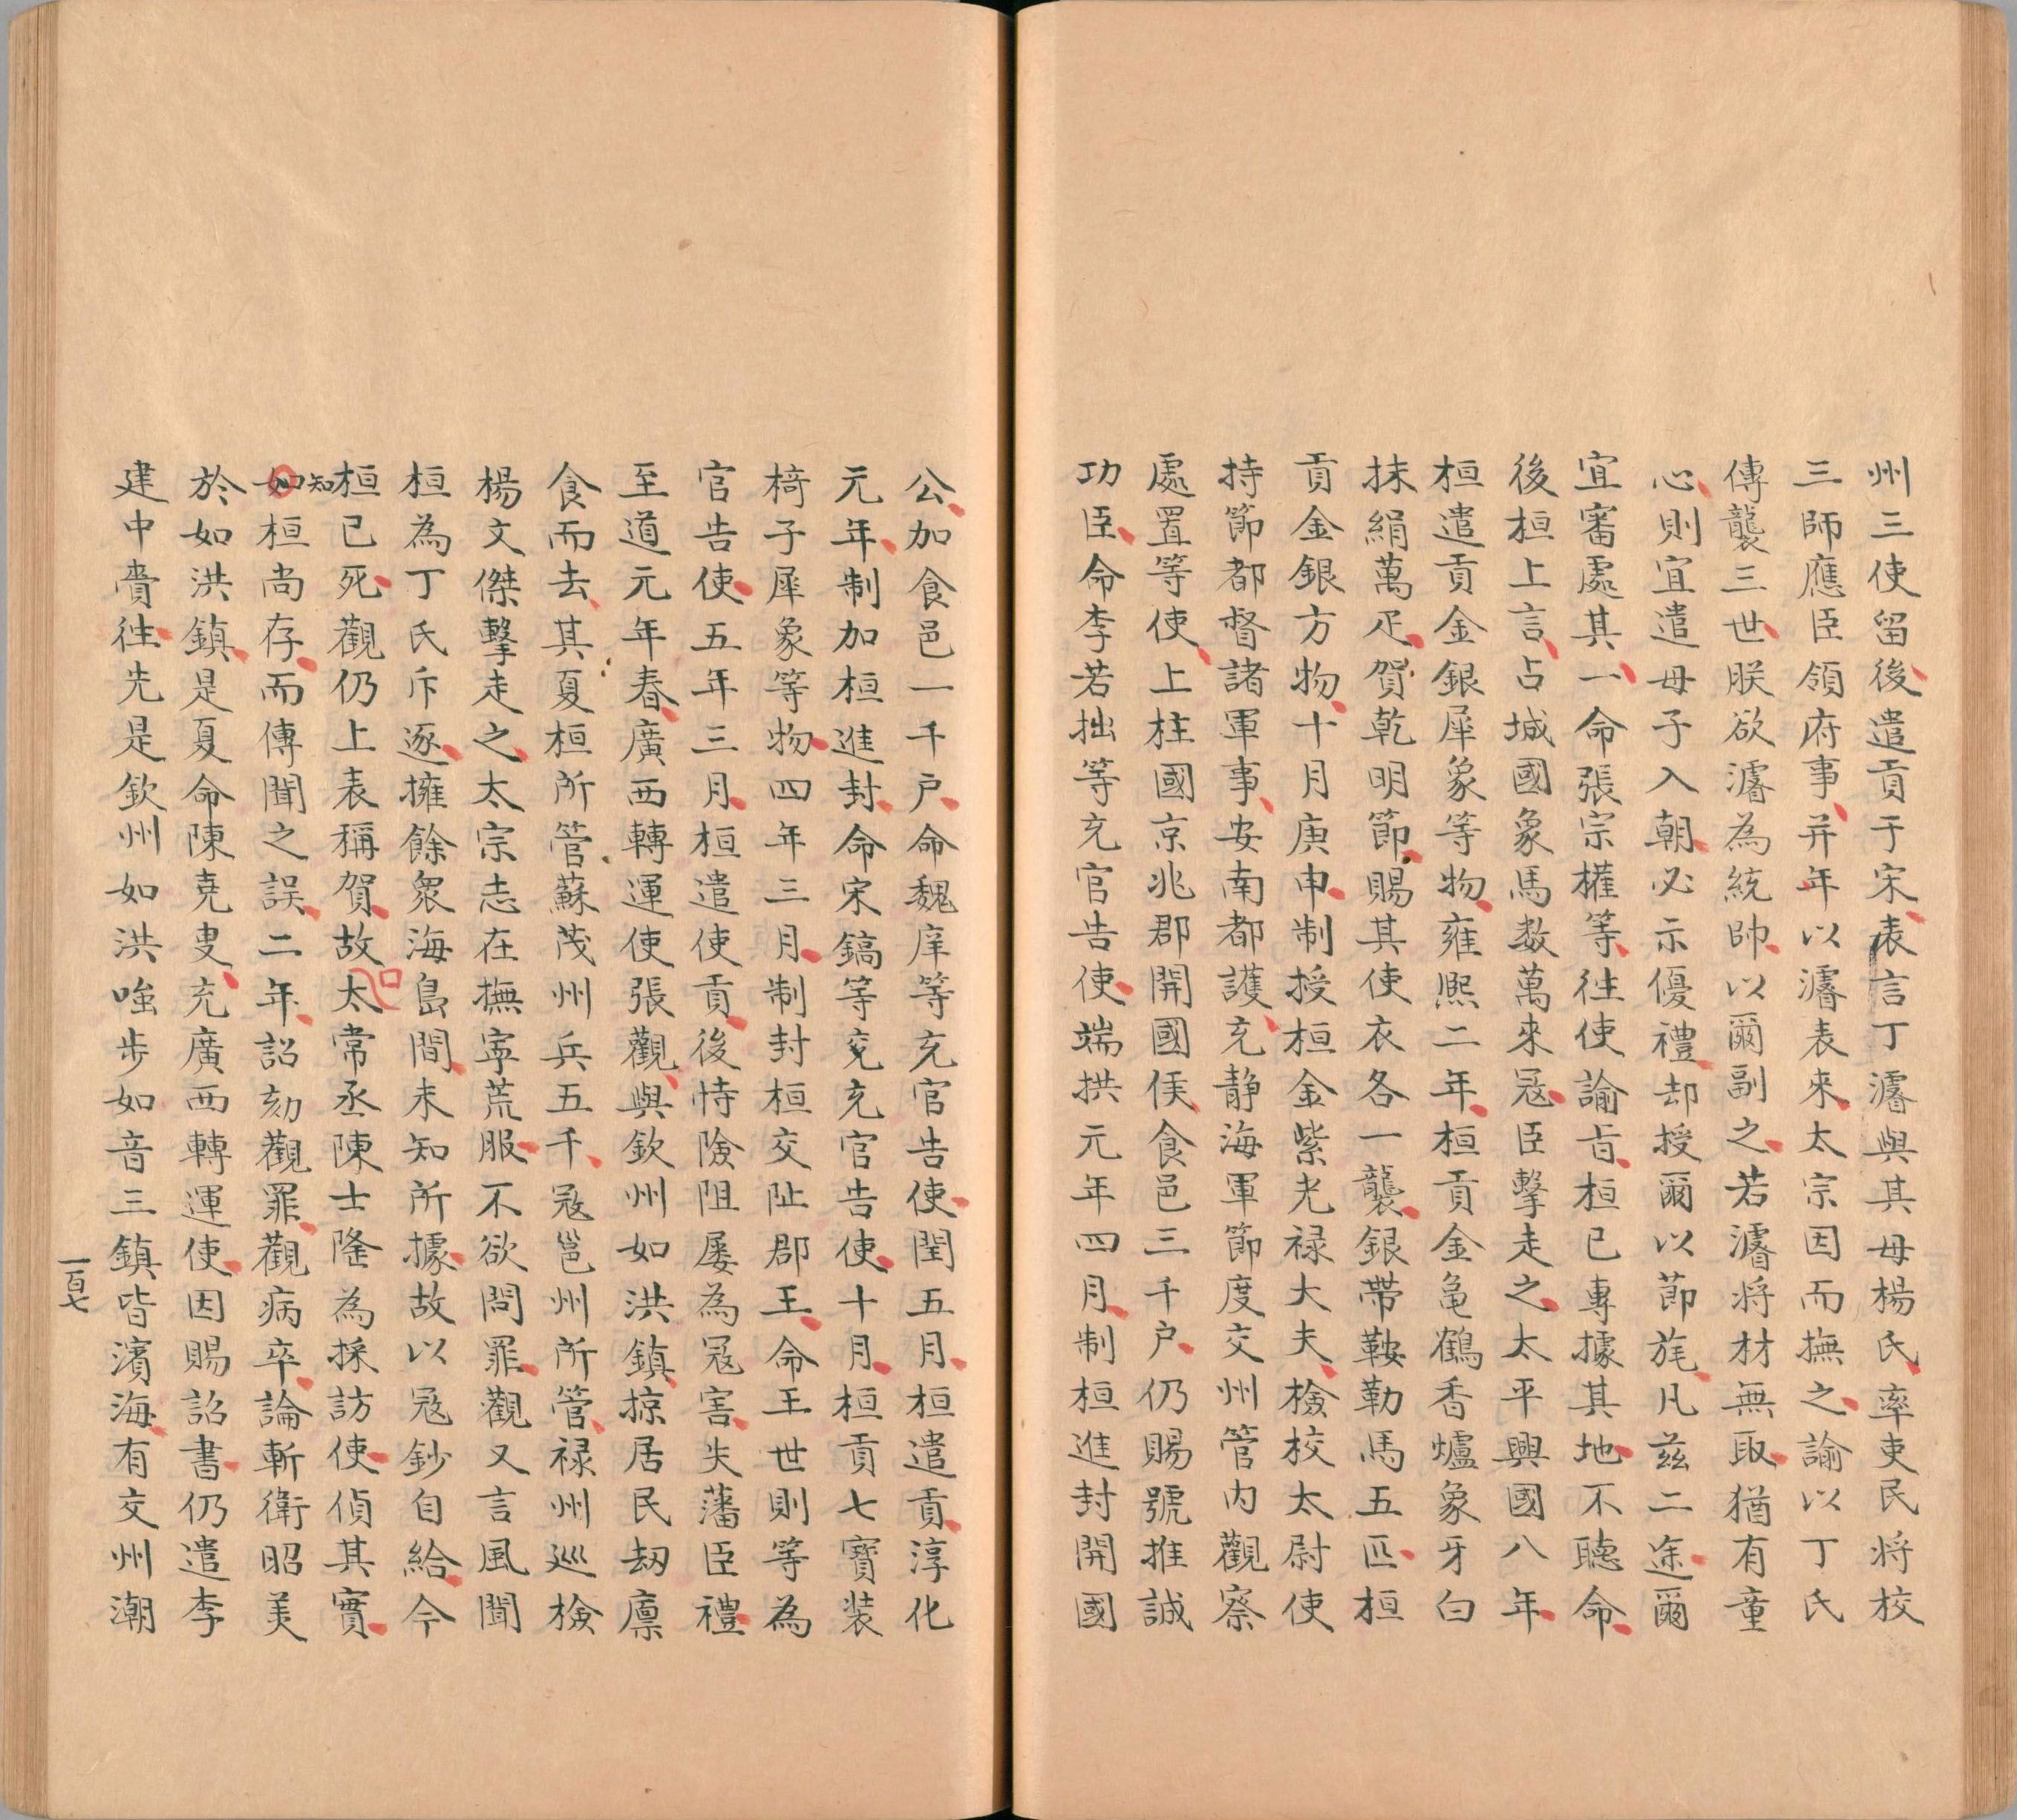 州三使留後遣貢于宋表言丁濬與其母楊氏率吏民將校
三師應臣領府事并年以濬表來太宗因而撫之諭以丁氏
傳襲三世朕欲濬為統帥以爾副之若濬將材無取猶有童
心則宜遣母子入朝必示優禮却授爾以節旄凡茲二途爾
宜審處其一命張宗權等往使諭旨桓已專據其地不聽命
後桓上言占城國象馬数萬來冦臣擊走之太平興國八年
桓遣貢金銀犀象等物雍熙二年桓貢金龜鶴香爐象牙白
抹絹萬疋賀乾明節賜其使衣各一襲銀帶鞍勒馬五匹桓
貢金銀方物十月庚申制授桓金紫光禄大夫檢校太尉使
持節都督諸軍事安南都護充静海軍節度交州管内觀察
處置等使上柱國京兆郡開國侯食邑三千户仍賜號推誠
功臣命李若拙等充官告使端拱元年四月制桓進封開國
公加食邑一千户命魏庠等充官告使閏五月桓遣貢淳化
元年制加桓進封命宋鎬等充充官告使十月桓貢七寶装
椅子犀象等物四年三月制封桓交阯郡王命王世則等為
官告使五年三月桓遣使貢後恃險阻屡為冦害失藩臣禮
至道元年春廣西轉運使張觀與欽州如洪鎮掠居民刼廪
食而去其夏桓所管蘇茂州兵五千冦邕州所管禄州巡檢
楊文傑擊走之太宗志在撫寕荒服不欲問罪觀又言風聞
桓為丁氏斥逐擁餘衆海島間未知所據故以冦鈔自給今
桓已死觀仍上表稱賀故太常丞陳士隆為採訪使偵其實
知桓尚存而傳聞之誤二年詔劾觀罪觀病卒論斬衛昭美
於如洪鎮是夏命陳堯叟充廣西轉運使因賜詔書仍遣李
建中賫往先是欽州如洪㗂步如音三鎮皆濱海有交州潮
一百七